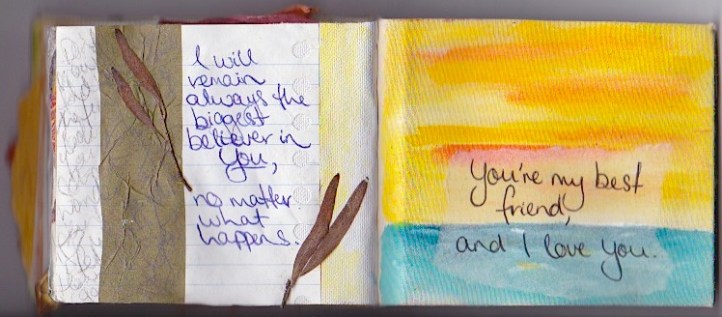 I will
remain
always the
biggest
believer in
You,
no matter
what
happens.
You're my best
friend,
and I love you.